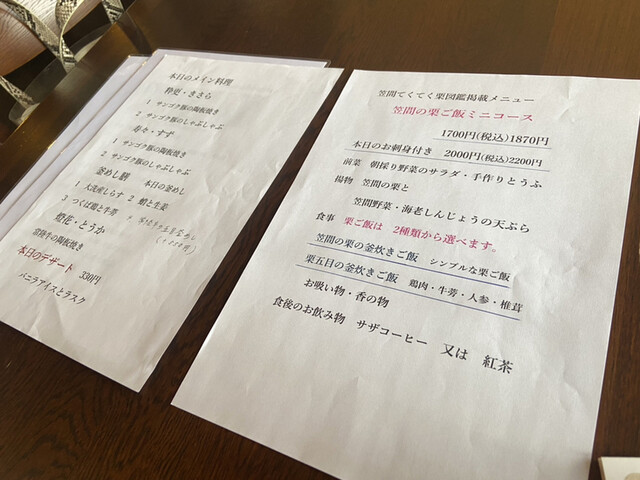 本日のメイン料理
粋更・きさら
1 サンゴク豚の陶板焼き
2 サンゴク豚のしゃぶしゃぶ
寿々・すず
1 サンゴク豚の陶板焼き
2 サンゴク豚のしゃぶしゃぶ
釜めし膳 本日の釜めし
1 大洗産しらす 2 蛸と生姜
3 つくば鶏と牛蒡
燈花・とうか
常陸牛の陶板焼き
本日のデザート 330円
バニラアイスとラスク
笠間てくてく栗図鑑掲載メニュー
笠間の栗ご飯ミニコース
1700円(税込)1870円
本日のお刺身付き 2000円(税込)2200円
前菜 朝採り野菜のサラダ・手作りとうふ
揚物 笠間の栗と
笠間野菜・海老しんじょうの天ぷら
食事 栗ご飯は 2種類から選べます。
笠間の栗の釜炊きご飯 シンプルな栗ご飯
栗五目の釜炊きご飯 鶏肉・牛蒡・人参・椎茸
お吸い物・香の物
食後のお飲み物 サザコーヒー 又は 紅茶